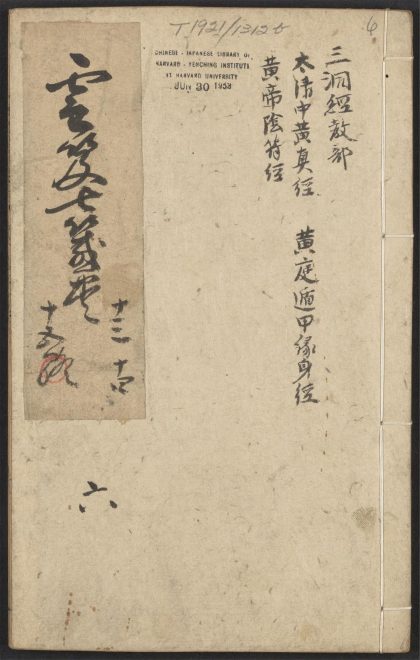 T 1921/1312b
6
CHINESE - JAPANESE LIBRARY OF
HARVARD - YENCHING INSTITUTE
AT HARVARD UNIVERSITY
JUN 30 1953
三洞經教部
太清中黃真經　黃庭遁甲緣身經
黃帝陰符經
雲笈七籤卷
十三 十四
十五終
六